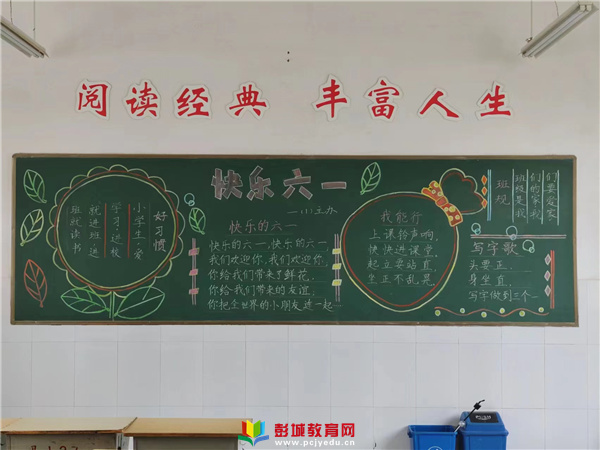 阅读经典 丰富人生
快乐六一
一(1)主办
好习惯
小学生,爱
学习,进校
就进班,进
班就读书
快乐的六一
快乐的六一,快乐的六一
我们欢迎你,我们欢迎你
你给我们带来了鲜花,
你给我们带来的友谊,
你把全世界的小朋友连一起
我能行
上课铃声响,
快快进课堂。
起立要站直,
坐正不乱晃。
班规
班级是我
们的家我
们要爱家
写字歌
头要正
身坐直
写字做到三个一
彭城教育网
www.pcjyedu.cn